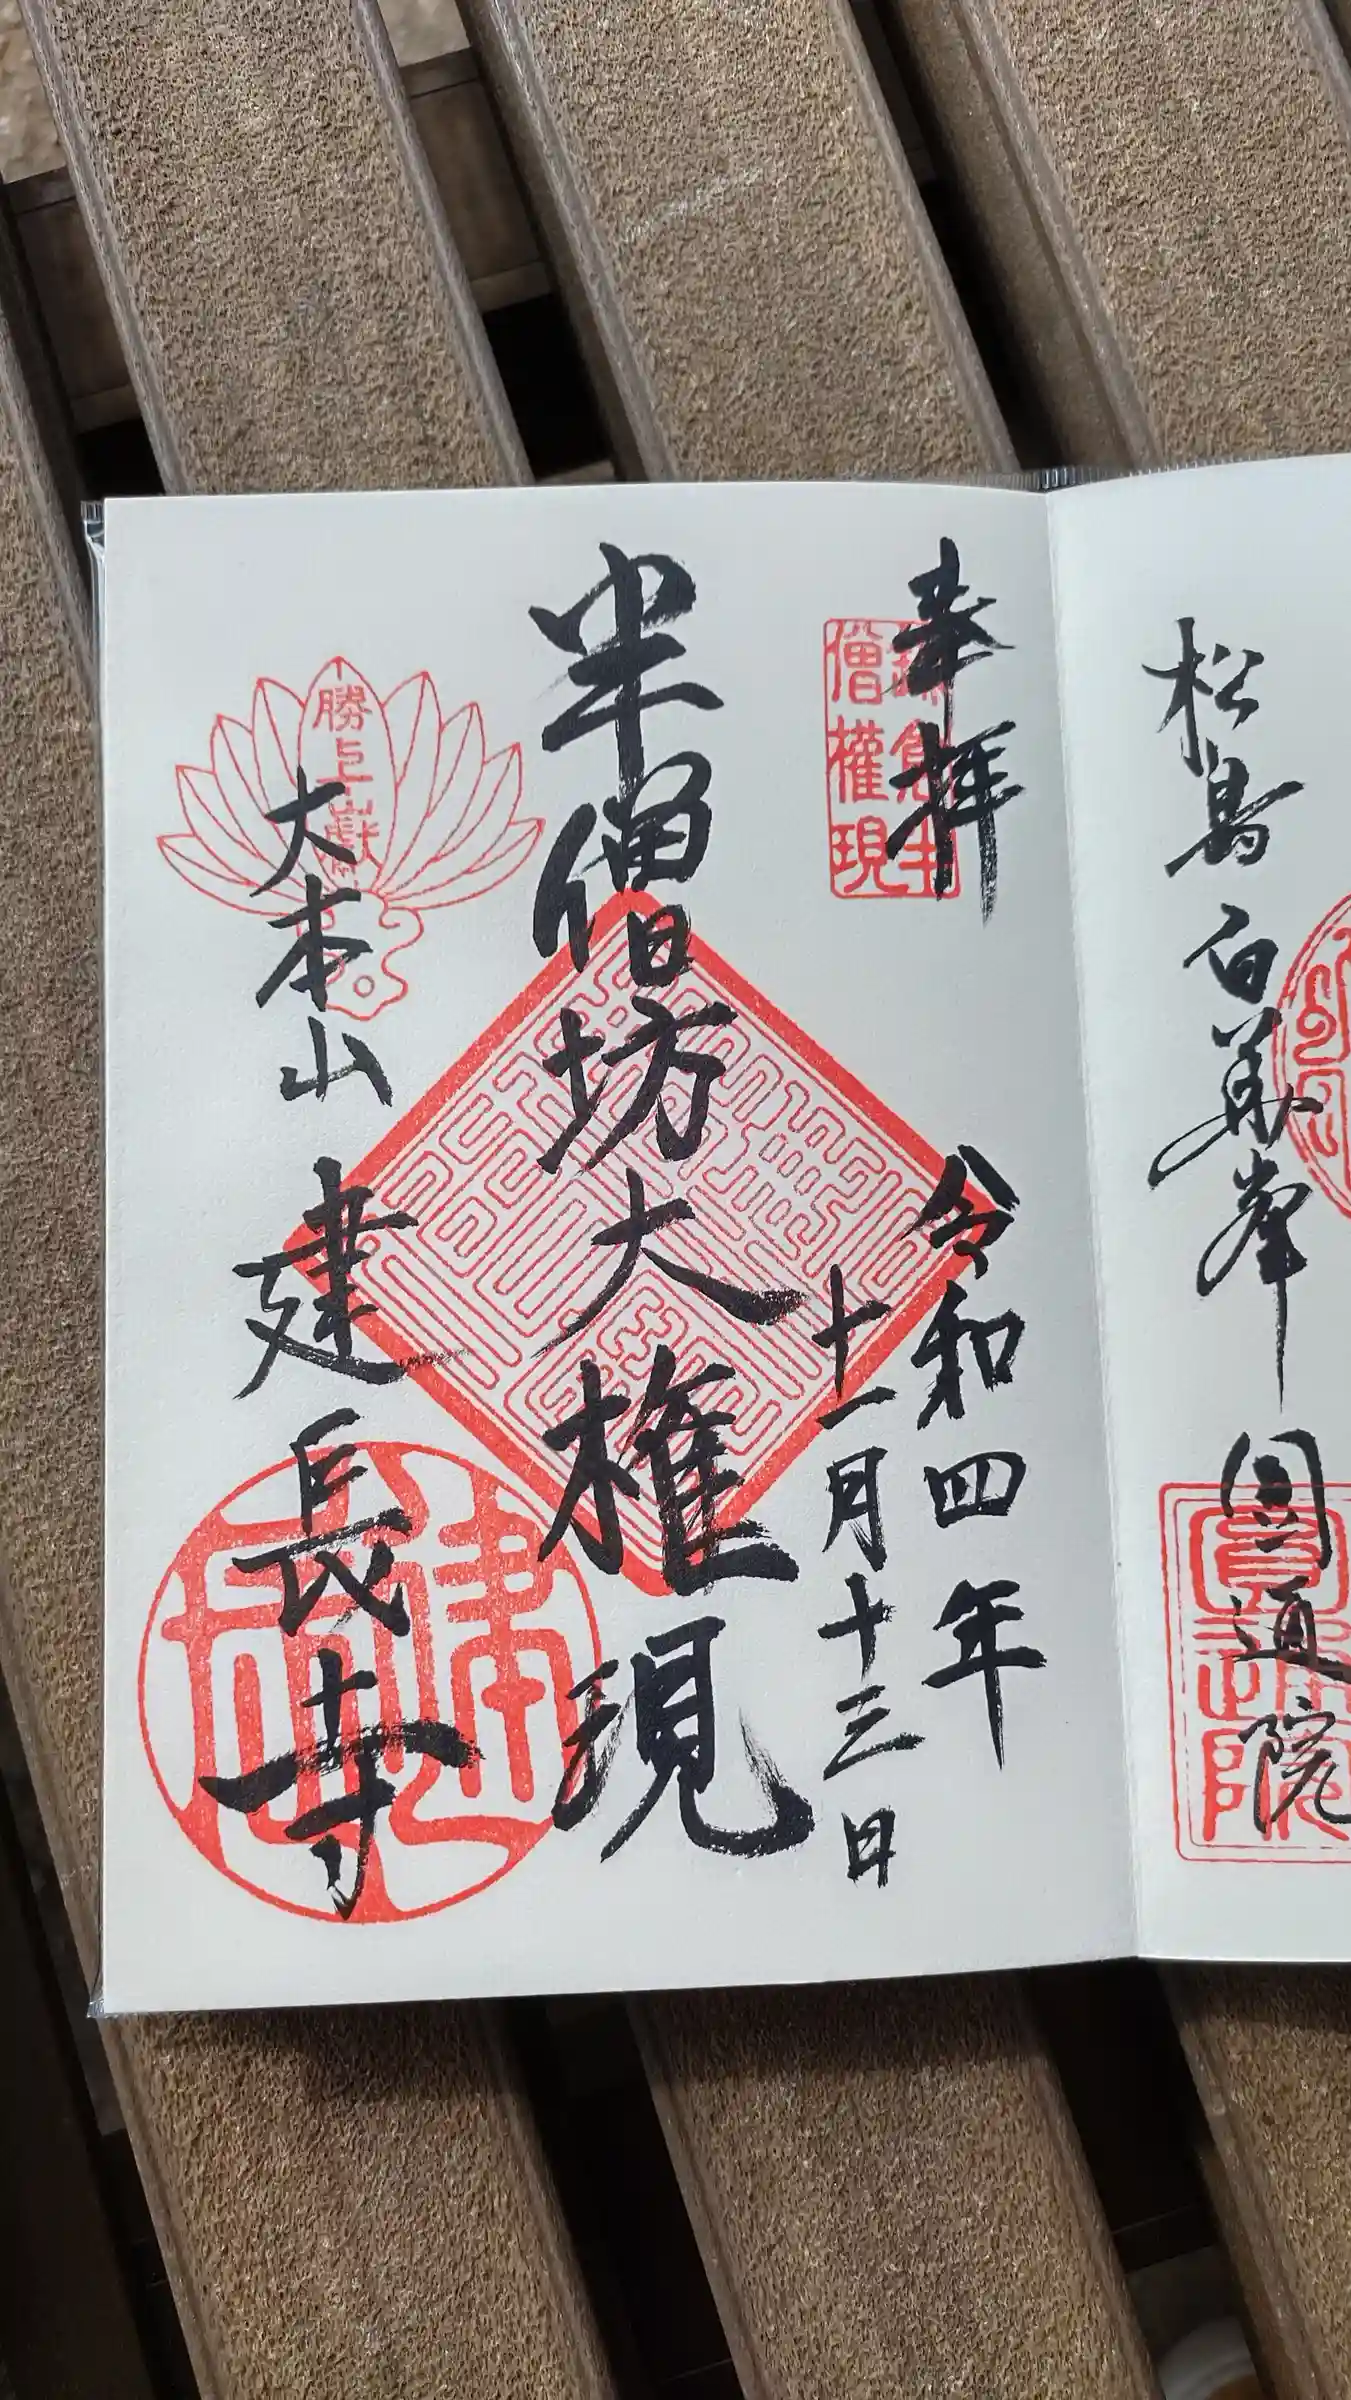 松島 白華峯 圓通院
奉拝
令和四年
十一月十三日
半僧坊大権現
大本山 建長寺
僧權現
勝上